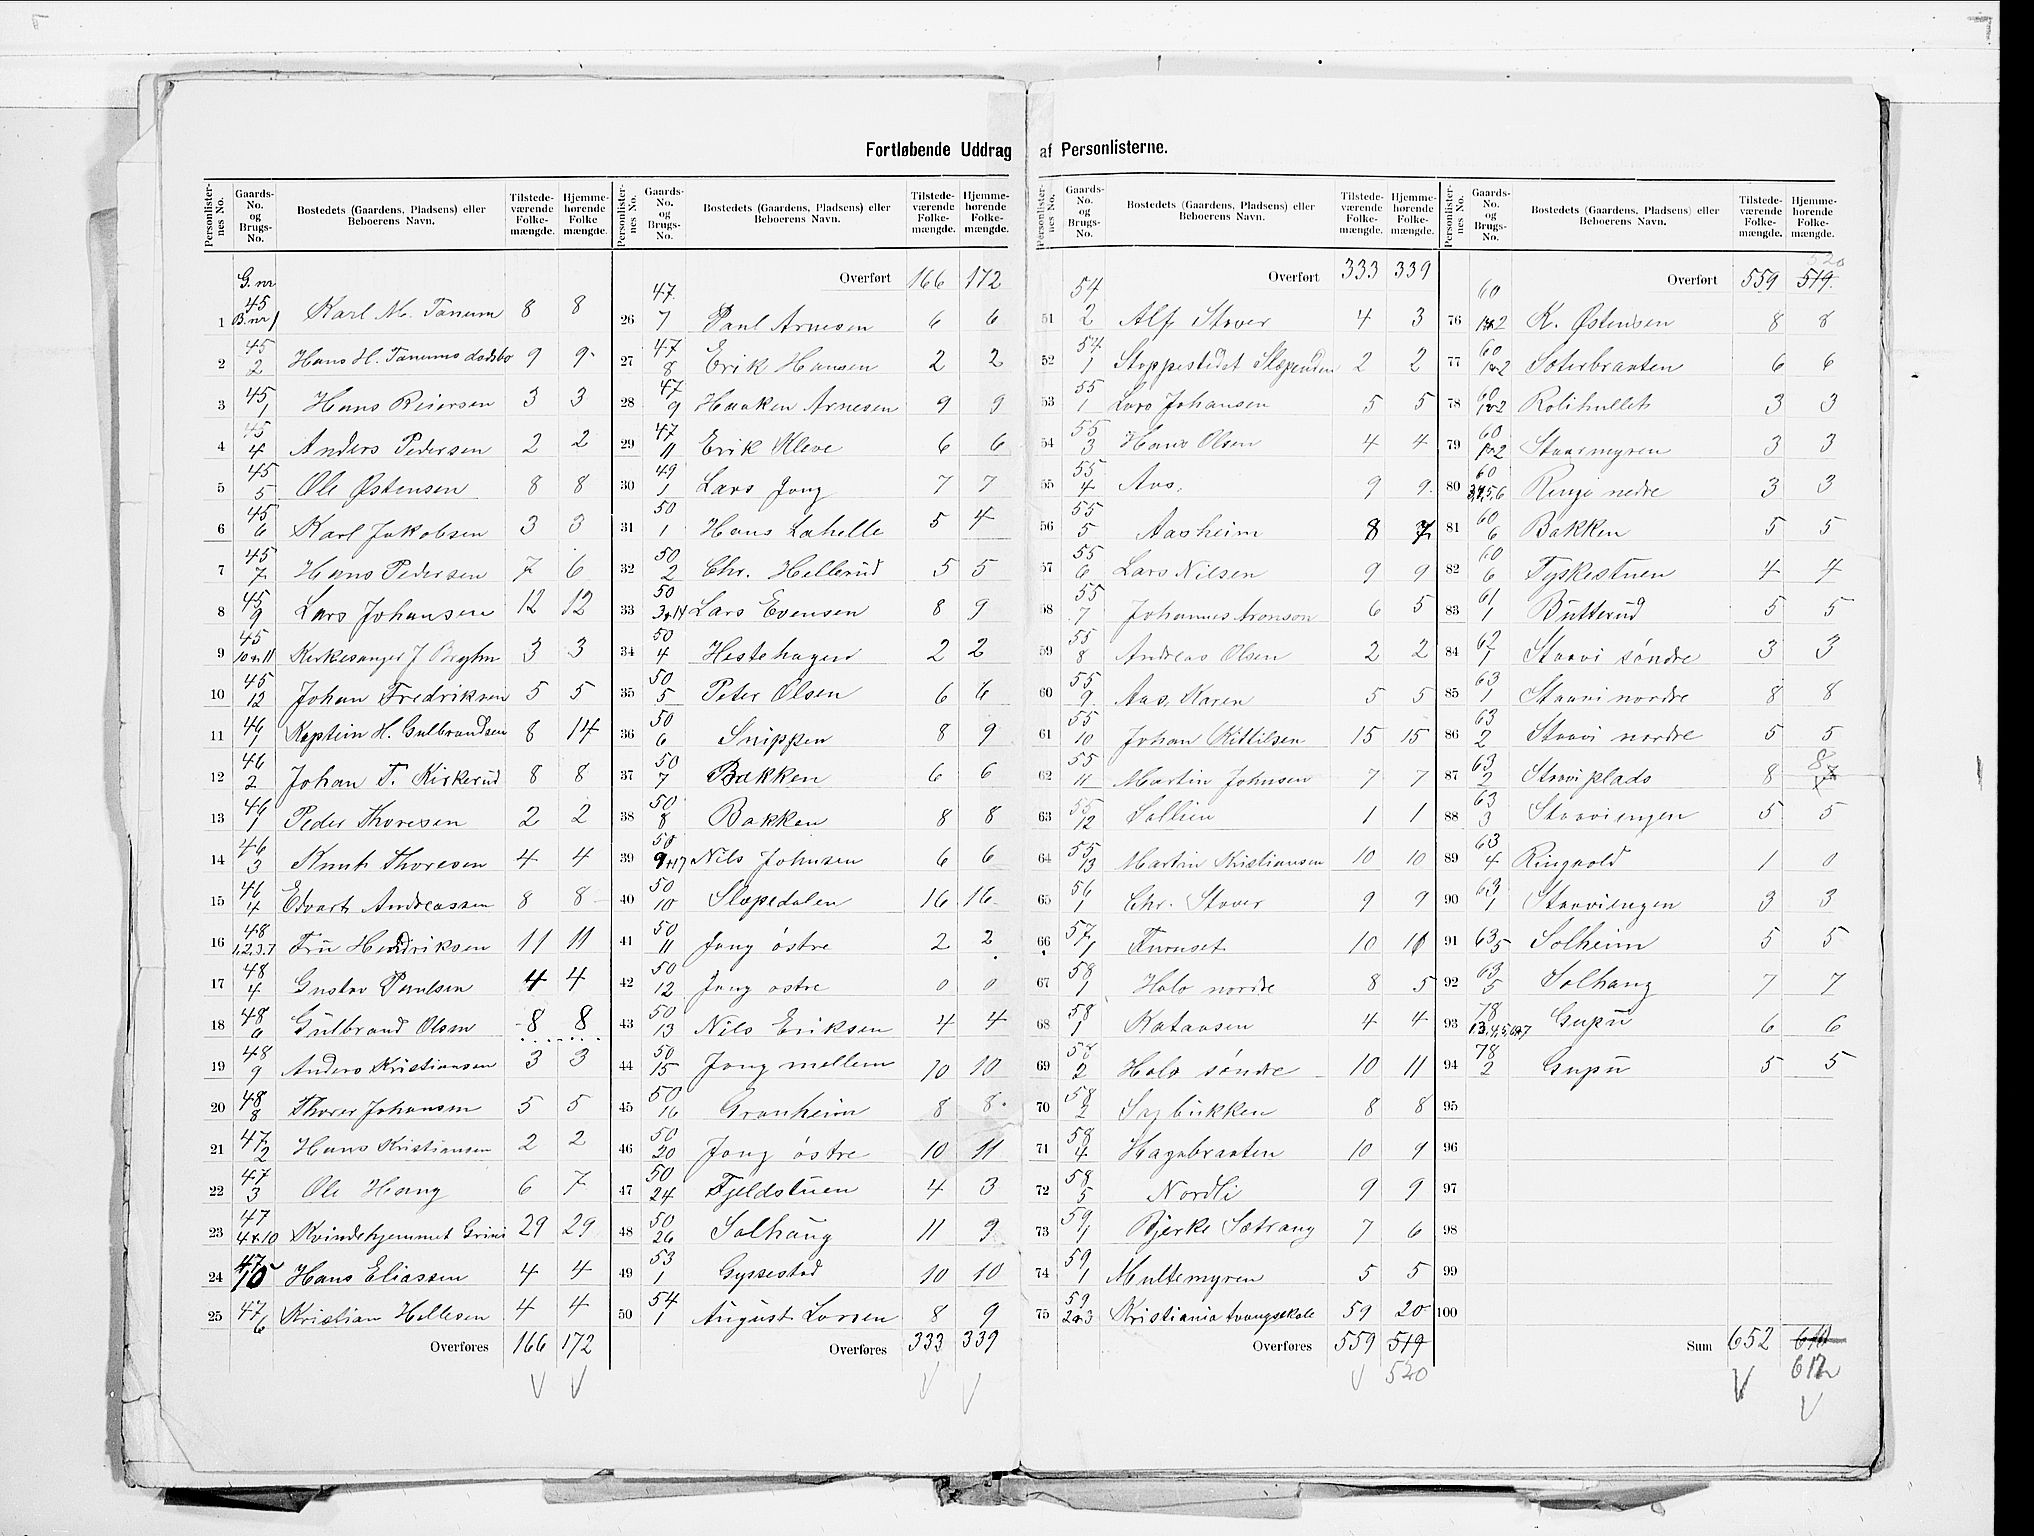 Fortløbende Uddrag af Personlisterne.
Personlisternes No. | Gaards-No. og Brugs-No. | Bostedets (Gaardens, Pladsens) eller Beboerens Navn. | Tilstedeværende Folkemængde. | Hjemmehørende Folkemængde.
G. nr 45
1 | B. nr 1 | Karl M. Tanum | 8 | 8
2 | 45 2 | Hans H. Tanums dødsbo | 9 | 9
3 | 45 1 | Hans Reiersen | 3 | 3
4 | 45 4 | Anders Pedersen | 2 | 2
5 | 45 5 | Ole Østensen | 8 | 8
6 | 45 6 | Karl Jakobsen | 3 | 3
7 | 45 7 | Hans Pedersen | 7 | 6
8 | 45 9 | Lars Johansen | 12 | 12
9 | 45 10 + 11 | Kirkesanger J | 3 | 3
10 | 45 12 | Johan Fredriksen | 5 | 5
11 | 46 1 | Kaptein H. Gulbrandsen | 8 | 14
12 | 46 2 | Johan T. Kirkerud | 8 | 8
13 | 46 1 | Peder Thoresen | 2 | 2
14 | 46 3 | Knut Thoresen | 4 | 4
15 | 46 4 | Edvart Andreassen | 8 | 8
16 | 48 1,2,3,7 | Fru Hendriksen | 11 | 11
17 | 48 4 | Gustav Paulsen | 4 | 4
18 | 48 6 | Gulbrand Olsen | 8 | 8
19 | 48 9 | Anders Kristiansen | 3 | 3
20 | 48 8 | Thorer Johansen | 5 | 5
21 | 47 2 | Hans Kristiansen | 2 | 2
22 | 47 3 | Ole Haug | 6 | 7
23 | 47 4 + 10 | Kvindehjemmet Grini | 29 | 29
24 | 47 | Hans Eliassen | 4 | 4
25 | 47 6 | Kristian Hellesen | 4 | 4
Overføres | 166 | 172
Personlisternes No. | Gaards-No. og Brugs-No. | Bostedets (Gaardens, Pladsens) eller Beboerens Navn. | Tilstedeværende Folkemængde. | Hjemmehørende Folkemængde.
Overført | 166 | 172
26 | 47 7 | Paul Arnesen | 6 | 6
27 | 47 8 | Erik Hansen | 2 | 2
28 | 47 9 | Haaken Arnesen | 9 | 9
29 | 47 11 | Erik Kleve | 6 | 6
30 | 49 1 | Lars Jong | 7 | 7
31 | 50 1 | Hans Løhelle | 5 | 4
32 | 50 2 | Chr. Hellerud | 5 | 5
33 | 50 3+14 | Lars Evensen | 8 | 9
34 | 50 4 | Hestehagen | 2 | 2
35 | 50 5 | Peter Olsen | 6 | 6
36 | 50 6 | Snippen | 8 | 9
37 | 50 7 | Bakken | 6 | 6
38 | 50 8 | Bakken | 8 | 8
39 | 50 9+17 | Nils Johnsen | 6 | 6
40 | 50 10 | Slæpedalen | 16 | 16
41 | 50 11 | Jong østre | 2 | 2
42 | 50 12 | Jong østre | 0 | 0
43 | 50 13 | Nils Eriksen | 4 | 4
44 | 50 15 | Jong mellem | 10 | 10
45 | 50 16 | Granheim | 8 | 8
46 | 50 20 | Jong østre | 10 | 11
47 | 50 24 | Fjeldstuen | 4 | 3
48 | 50 26 | Solhaug | 11 | 9
49 | 53 1 | Gyssestad | 10 | 10
50 | 54 1 | August Larsen | 8 | 9
Overføres | 333 | 339
Personlisternes No. | Gaards-No. og Brugs-No. | Bostedets (Gaardens, Pladsens) eller Beboerens Navn. | Tilstedeværende Folkemængde. | Hjemmehørende Folkemængde.
Overført | 333 | 339
51 | 54 2 | Alf Staver | 4 | 3
52 | 54 1 | Stoppestedet Slæpenden | 2 | 2
53 | 55 1 | Lars Johansen | 5 | 5
54 | 55 3 | Hans Olsen | 4 | 4
55 | 55 4 | Aas. | 9 | 9
56 | 55 5 | Aasheim | 8 | 7
57 | 55 6 | Lars Nilsen | 9 | 9
58 | 55 7 | Johannes Aronson | 6 | 5
59 | 55 8 | Andreas Olsen | 2 | 2
60 | 55 9 | Aas, Karen | 5 | 5
61 | 55 10 | Johan Kittilsen | 15 | 15
62 | 55 11 | Martin Johnsen | 7 | 7
63 | 55 12 | Sollien | 1 | 1
64 | 55 13 | Martin Kristiansen | 10 | 10
65 | 56 1 | Chr. Staver | 9 | 9
66 | 57 1 | Furuset | 10 | 11
67 | 58 1 | Holo nordre | 8 | 5
68 | 58 1 | Kataasen | 4 | 4
69 | 58 2 | Holo søndre | 10 | 11
70 | 58 2 | Sagbakken | 8 | 8
71 | 58 4 | Hagabraaten | 10 | 9
72 | 58 5 | Nordli | 9 | 9
73 | 59 1 | Bjerke Sætrang | 7 | 6
74 | 59 1 | Multemyren | 5 | 5
75 | 59 2+3 | Kristiania tvangsskole | 59 | 20
Overføres | 559 | 519
520
Personlisternes No. | Gaards-No. og Brugs-No. | Bostedets (Gaardens, Pladsens) eller Beboerens Navn. | Tilstedeværende Folkemængde. | Hjemmehørende Folkemængde.
520
Overført | 559 | 519
76 | 60 1+2 | K. Østensen | 8 | 8
77 | 60 1+2 | Soterbraaten | 6 | 6
78 | 60 1+2 | Rolihullet | 3 | 3
79 | 60 1+2 | Staasmyren | 3 | 3
80 | 60 3,4,5,6 | Ringi nedre | 3 | 3
81 | 60 6 | Bakken | 5 | 5
82 | 60 6 | Tyskestuen | 4 | 4
83 | 61 1 | Butterud | 5 | 5
84 | 62 1 | Staavi søndre | 3 | 3
85 | 63 1 | Staavi nordre | 8 | 8
86 | 63 2 | Staavi nordre | 5 | 5
87 | 63 2 | Staaviplads | 8 | 8 7
88 | 63 3 | Staaviengen | 5 | 5
89 | 63 4 | Ringvold | 1 | 0
90 | 63 1 | Staaviengen | 3 | 3
91 | 63 5 | Solheim | 5 | 5
92 | 63 5 | Solhaug | 7 | 7
93 | 78 | Gupu | 6 | 6
94 | 78 2 | Gupu | 5 | 5
95
96
97
98
99
100
Sum | 652 | 611
612